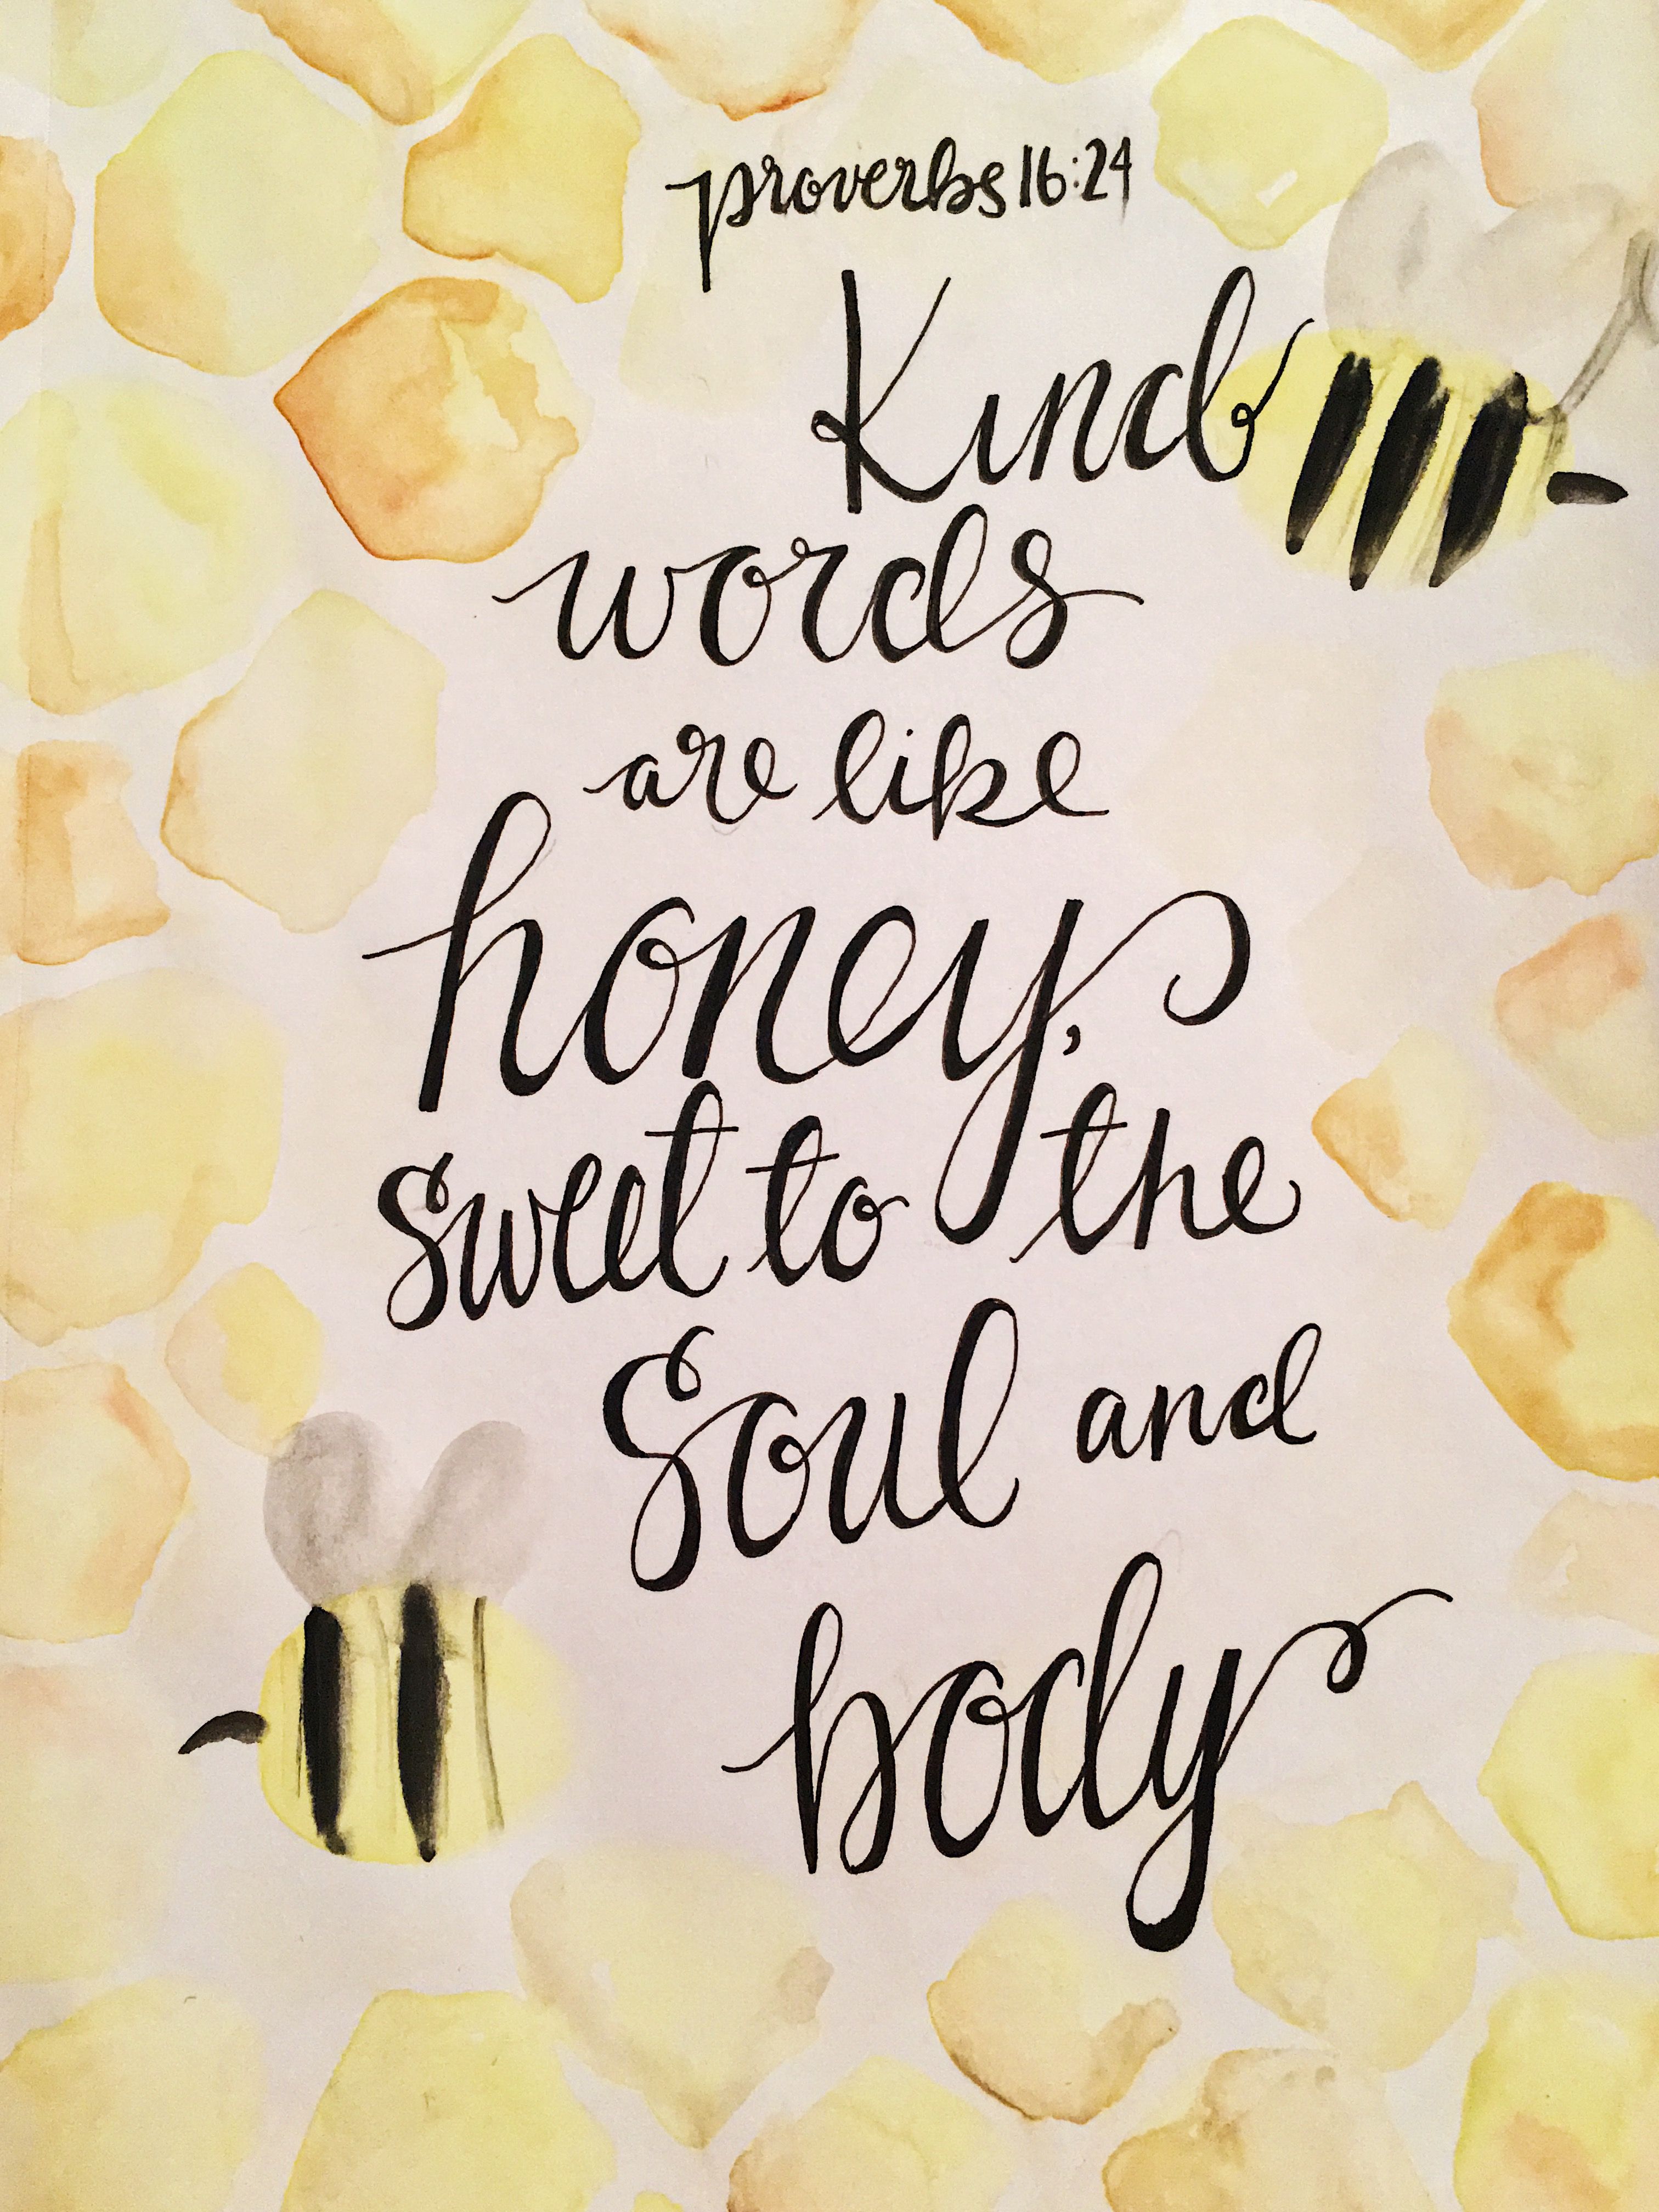 proverbs 16:24
Kind
words
are like
honey,
sweet to the
Soul and
body